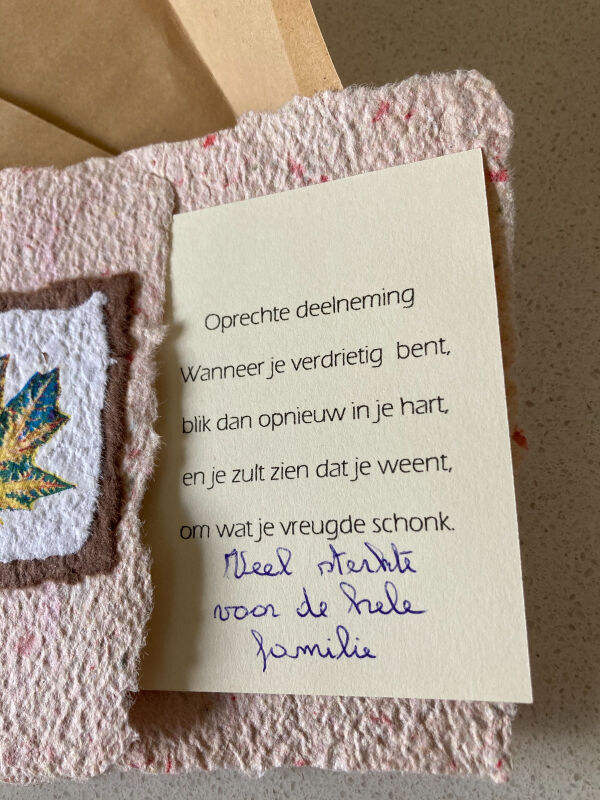 Oprechte deelneming
Wanneer je verdrietig bent,
blik dan opnieuw in je hart,
en je zult zien dat je weent,
om wat je vreugde schonk.
Veel sterkte
voor de hele
familie